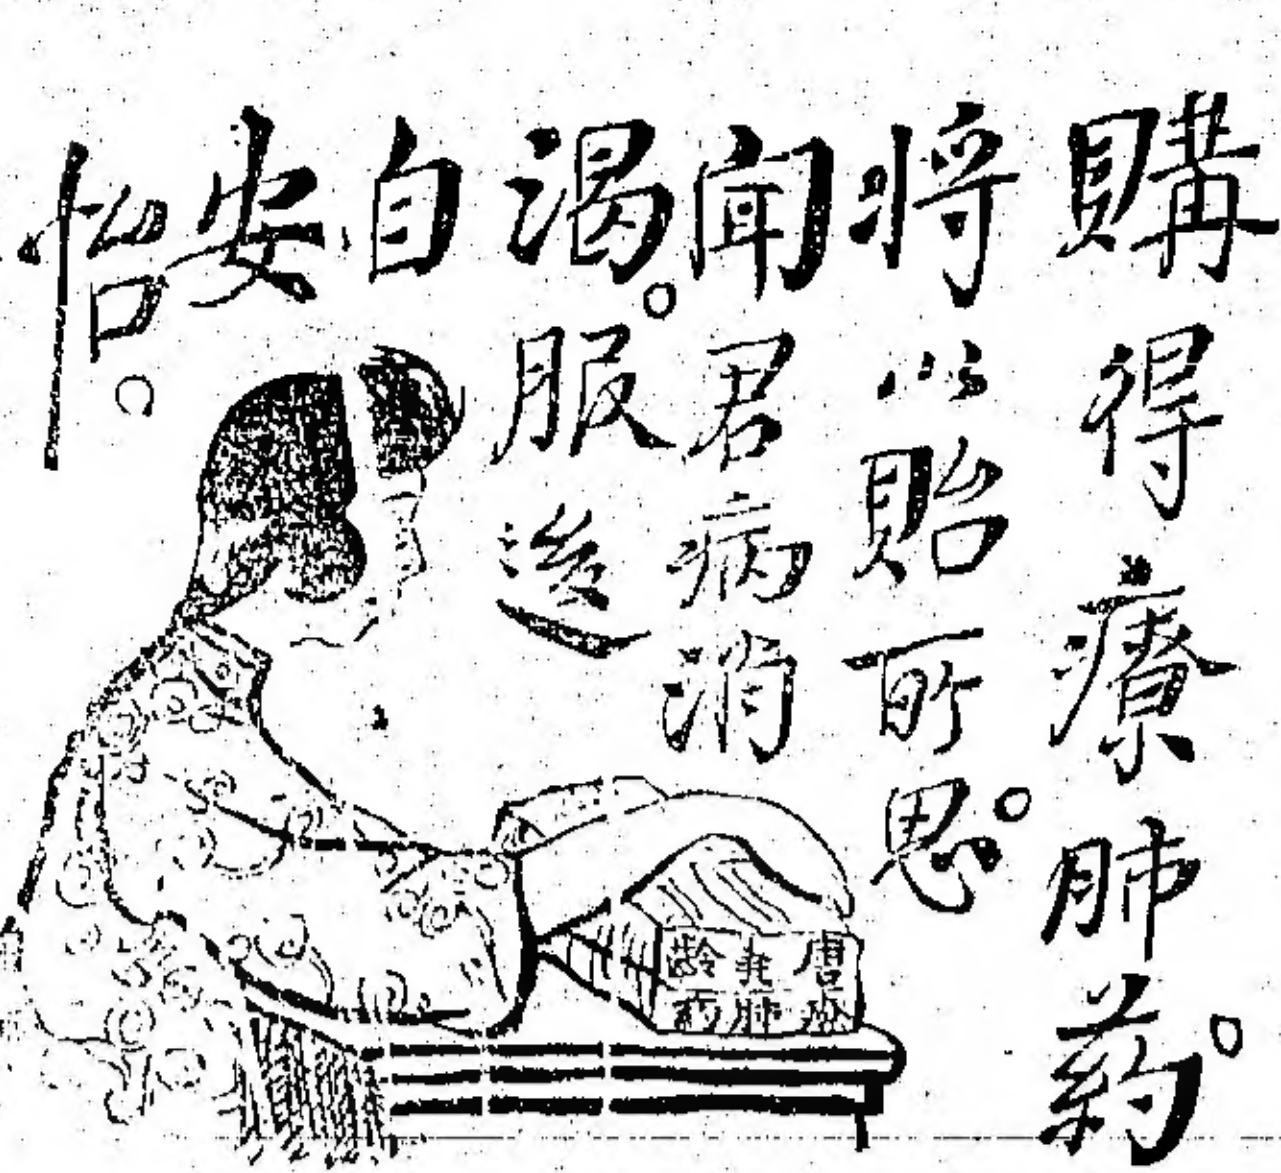 購得療肺药。
將以貽所思。
聞君病消
渴。服後
自
安
怡。
唐拾
肺
药